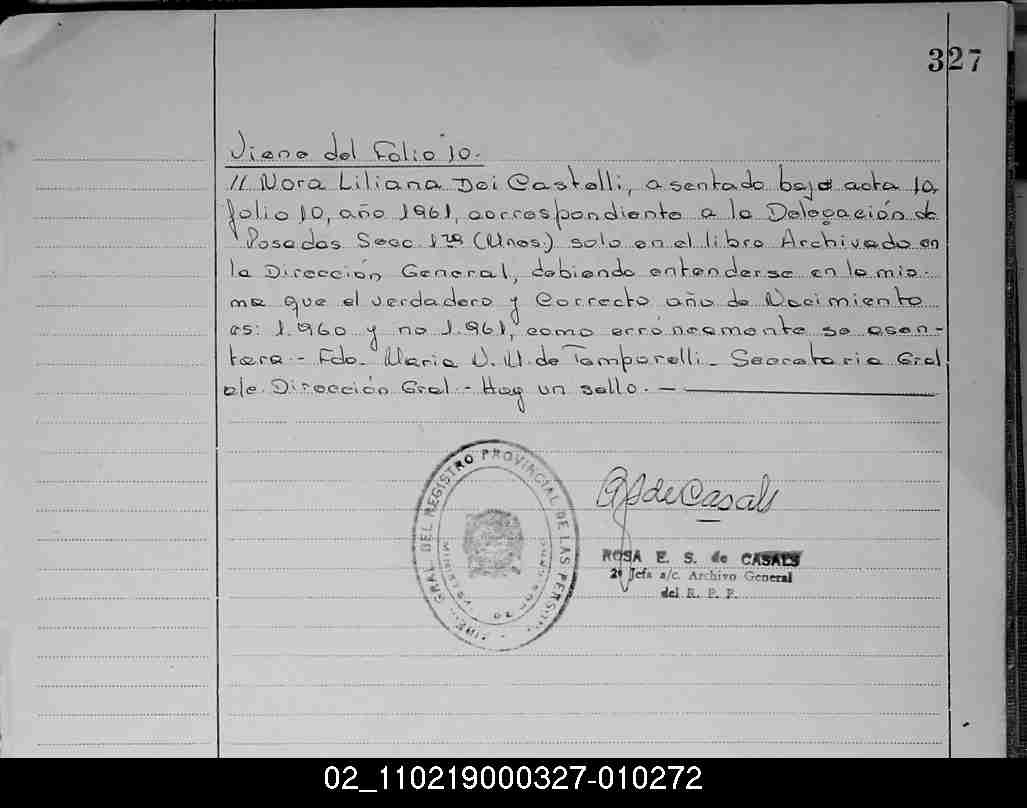 327
Viene del Folio 10.
// Nora Liliana Dei Castelli, asentado bajo acta 10,
folio 10, año 1961, correspondiente a la Delegación de
Posadas Secc 1ra (Unos.) solo en el libro Archivado en
la Dirección General, debiendo entenderse en la mis-
ma que el verdadero y Correcto año de Nacimiento
es: 1.960 y no 1.961, como erróneamente se asen-
tara.- Fdo. Maria U. U. de Tamporelli - Secretaria Gral
a/c. Dirección Gral - Hay un sello. -
GRAL. DEL REGISTRO PROVINCIAL DE LAS PERSON
RSdeCasals
ROSA E. S. de CASALS
2º Jefa a/c. Archivo General
del R. P. P.
02_110219000327-010272